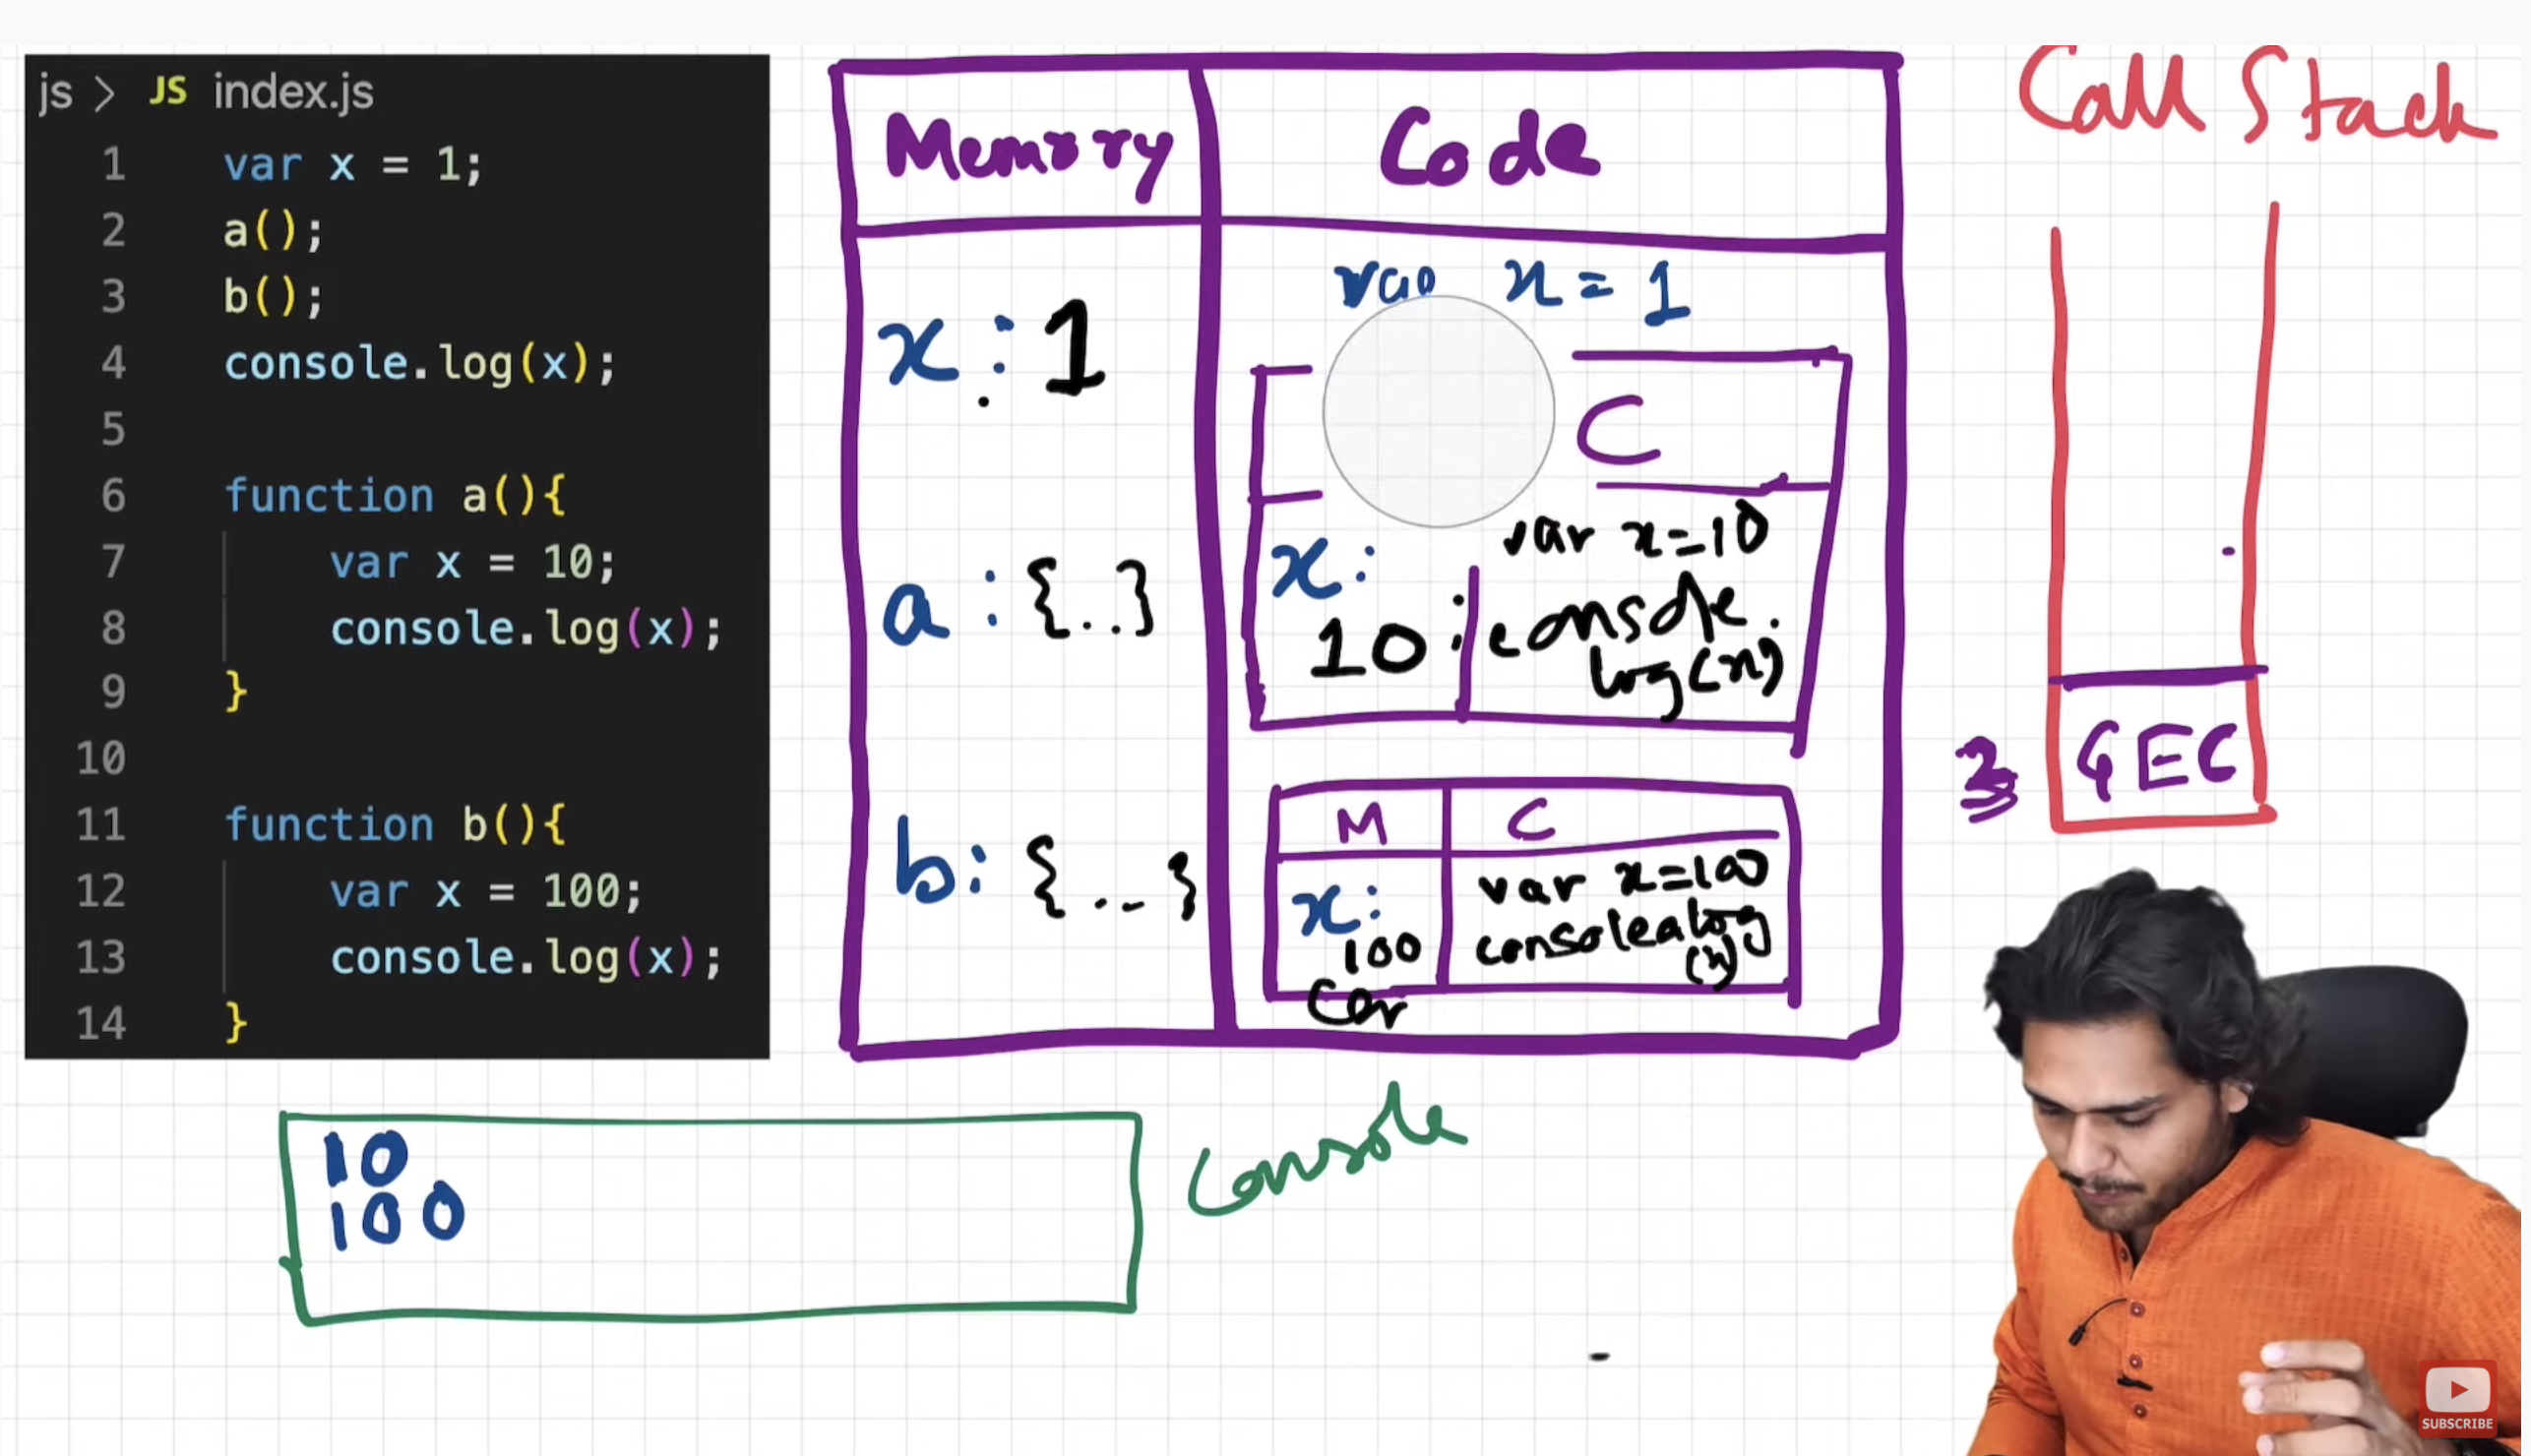 js > JS index.js
1 var x = 1;
2 a();
3 b();
4 console.log(x);
5
6 function a(){
7 var x = 10;
8 console.log(x);
9 }
10
11 function b(){
12 var x = 100;
13 console.log(x);
14 }
Memory Code
x : 1
a : {..}
b: {..}
var x = 1
C
x:
10
var x=10
console.
log(x)
M C
x:
100
var x=100
console log
(x)
Call Stack
GEC
10
100
Console
SUBSCRIBE